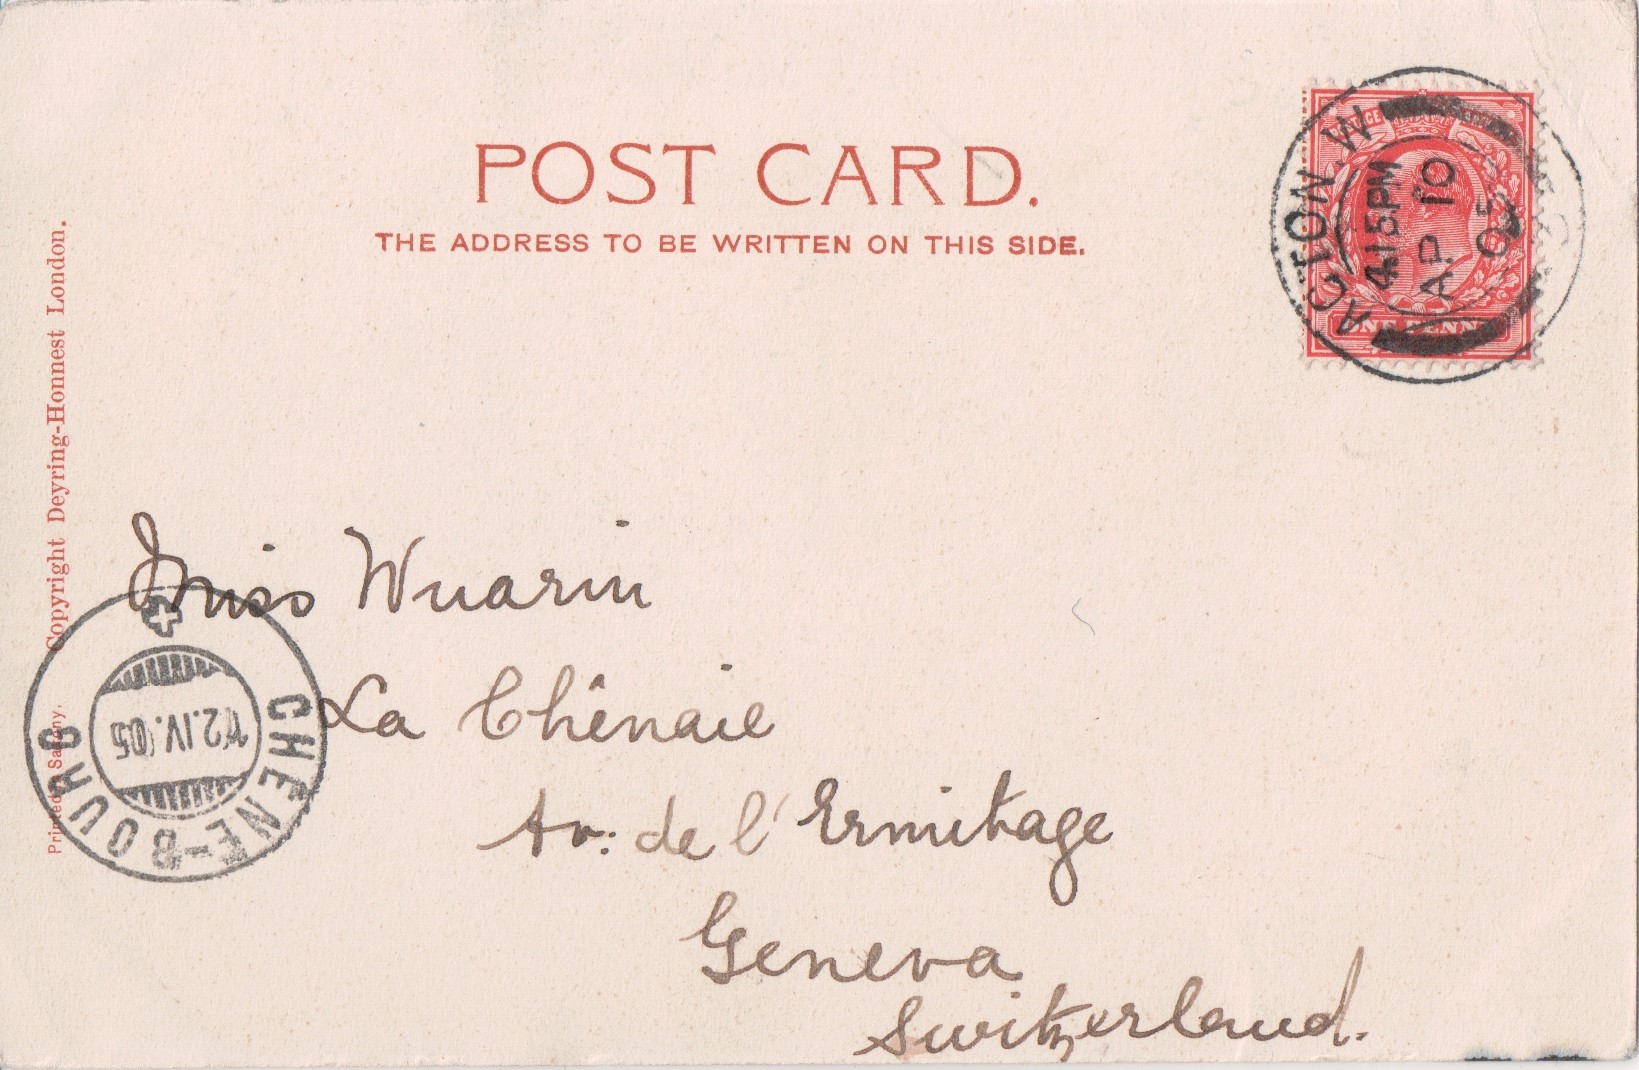 POST CARD.
THE ADDRESS TO BE WRITTEN ON THIS SIDE.
ACTON. W
4.15 PM
AP 10
05
POSTAGE
ONE PENNY
Printed Saxony. Copyright Deyring-Honnest London.
Miss Wuarin
La Chênaie
Av: de l'Ermitage
Geneva
Switzerland.
CHÊNE-BOURG
12.IV.05